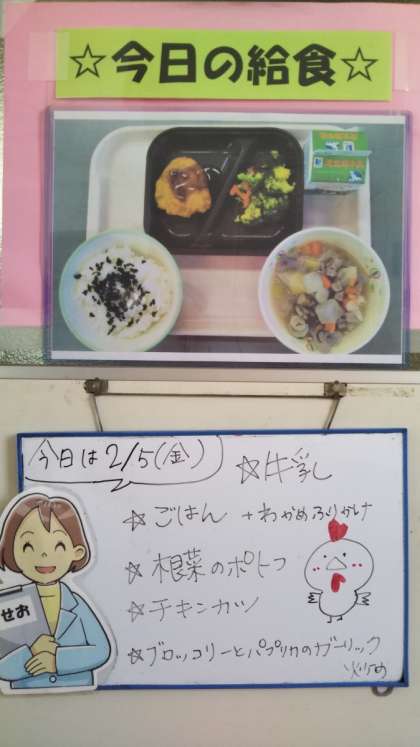 ☆今日の給食☆
今日は2/5(金)
☆牛乳
☆ごはん +わかめふりかけ
☆根菜のポトフ
☆チキンカツ
☆ブロッコリーとパプリカのガーリック
炒め
せお